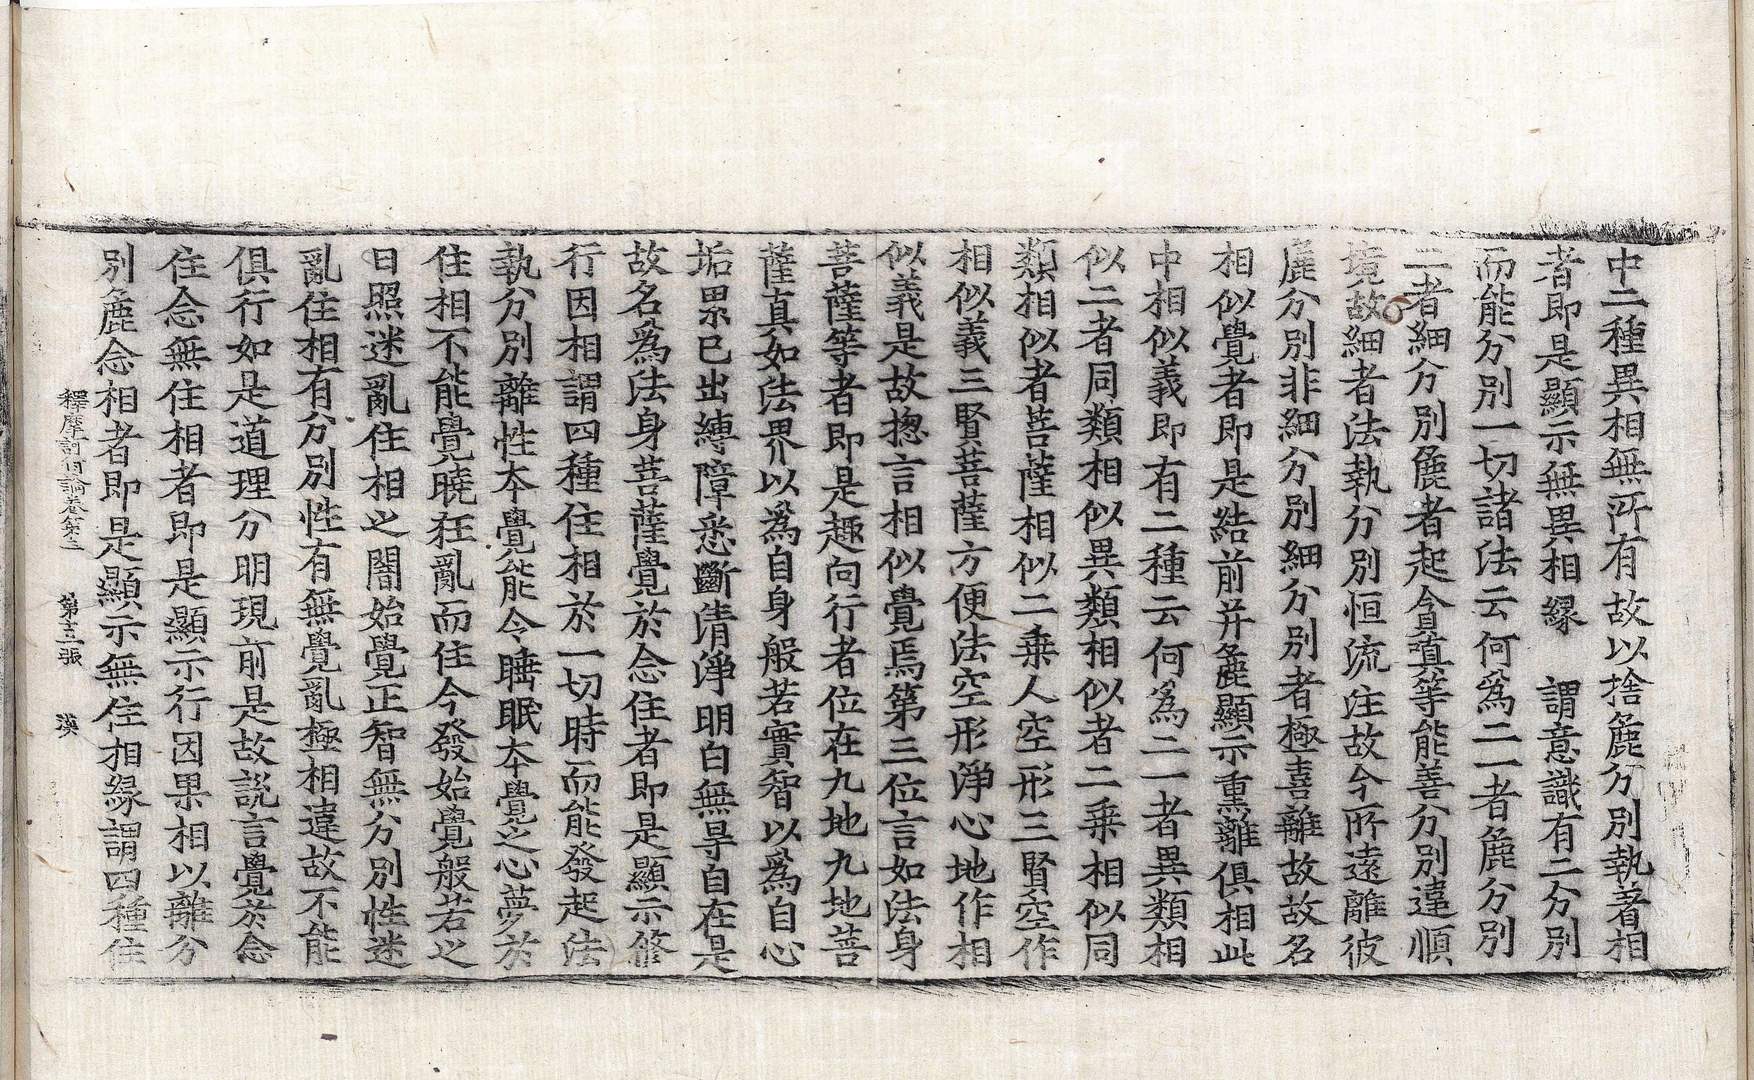 中二種異相無所有故以捨麁分別執著相
者即是顯示無異相緣　謂意識有二分別
而能分別一切諸法云何爲二一者麁分別
二者細分別麁者起貪嗔等能善分別違順
境故細者法執分別恒流注故今所遠離彼
麁分別非細分別細分別者極喜離故故名
相似覺者即是結前并麁顯示熏離俱相此
中相似義即有二種云何爲二一者異類相
似二者同類相似異類相似者二乗相似同
類相似者菩薩相似二乗人空形三賢空作
相似義三賢菩薩方便法空形淨心地作相
似義是故揔言相似覺焉第三位言如法身
菩薩等者即是趣向行者位在九地九地菩
薩真如法界以爲自身般若實智以爲自心
垢累已出縛障悉斷清淨明白無㝵自在是
故名爲法身菩薩覺於念住者即是顯示修
行因相謂四種住相於一切時而能發起法
執分別離性本覺能令睡眠本覺之心夢於
住相不能覺曉狂亂而住今發始覺般若之
日照迷亂住相之闇始覺正智無分別性迷
亂住相有分別性有無覺亂極相違故不能
俱行如是道理分明現前是故說言覺於念
住念無住相者即是顯示行因果相以離分
別麁念相者即是顯示無住相緣謂四種住
釋摩訶衍論卷第三　第十三張　漢